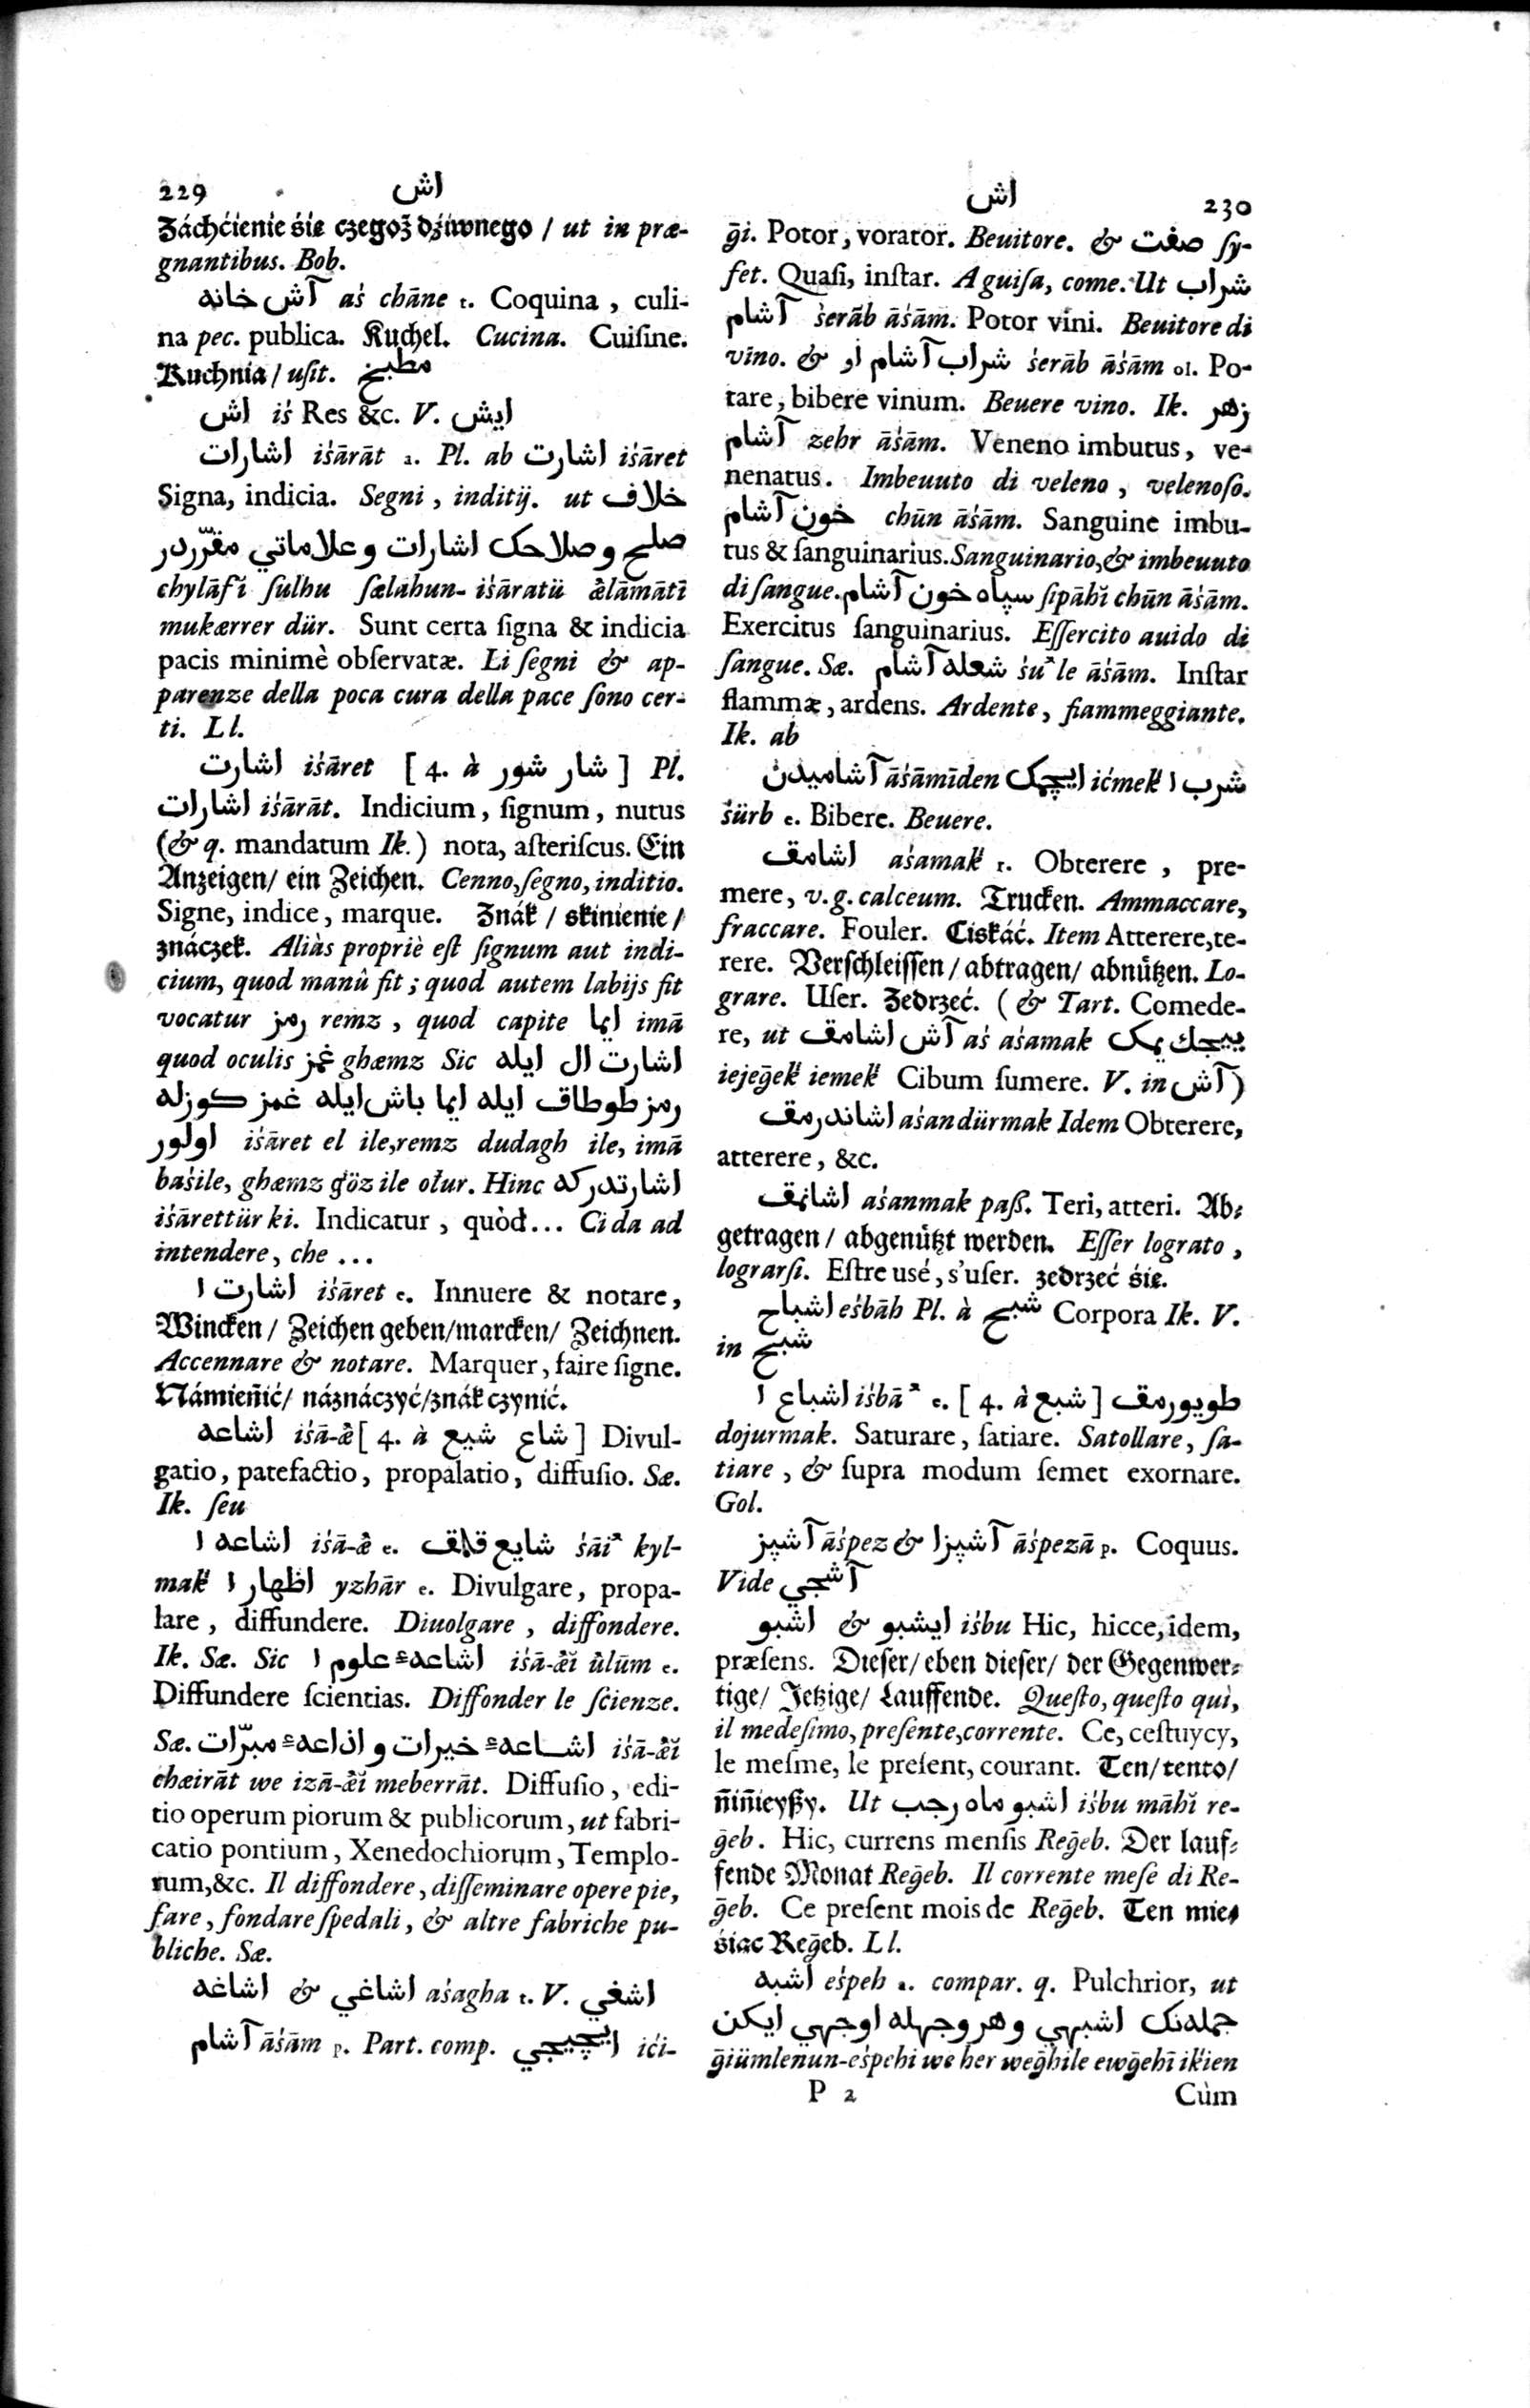 229 اش
Záchćienie śię czegoż dźiwnego / ut in præ-
gnantibus. Bob.
آش خانه aś chāne t. Coquina, culi-
na pec. publica. Kuchel. Cucina. Cuiſine.
Kuchnia / uſit. مطبخ
اش iś Res &c. V. ايش
اشارات iśārāt a. Pl. ab اشارت iśāret
Signa, indicia. Segni, inditij. ut خلاف
صلح وصلاحك اشارات وعلاماتي مقرّردر
chylāfĭ ſulhu ſælahun- iśāratü æ̂lāmātī
mukærrer dür. Sunt certa ſigna & indicia
pacis minimè obſervatæ. Li ſegni & ap-
parenze della poca cura della pace ſono cer-
ti. Ll.
اشارت iśāret [ 4. à شار شور ] Pl.
اشارات iśārāt. Indicium, ſignum, nutus
(& q. mandatum Ik.) nota, aſteriſcus. Ein
Anzeigen/ ein Zeichen. Cenno, ſegno, inditio.
Signe, indice, marque. Znák / skinienie /
znáczek. Aliàs propriè eſt ſignum aut indi-
cium, quod manû fit; quod autem labijs fit
vocatur رمز remz, quod capite ايما imā
quod oculis غمز ghæmz Sic اشارت ال ايله
رمز طوطاق ايله ايما باش ايله غمز كوزله
اولور iśāret el ile, remz dudagh ile, imā
baśile, ghæmz göz ile ołur. Hinc اشارتدركه
iśārettür ki. Indicatur, quòd... Ci da ad
intendere, che ...
اشارت ا iśāret e. Innuere & notare,
Wincken / Zeichen geben/marcken/ Zeichnen.
Accennare & notare. Marquer, faire ſigne.
Námienić/ náznáczyć/znák czynić.
اشاعه iśā-æ̂ [ 4. à شاع شيع ] Divul-
gatio, patefactio, propalatio, diffuſio. Sæ.
Ik. ſeu
اشاعه ا iśā-æ̂ e. شايع قلمق śāiʿ kyl-
mak اظهار ا yzhār e. Divulgare, propa-
lare, diffundere. Diuolgare, diffondere.
Ik. Sæ. Sic اشاعهٔ علوم ا iśā-æ̂ĭ ûlūm e.
Diffundere ſcientias. Diffonder le ſcienze.
Sæ. اشاعهٔ خيرات و اذاعهٔ مبرّات iśā-æ̂ĭ
chæirāt we izā-æ̂ĭ meberrāt. Diffuſio, edi-
tio operum piorum & publicorum, ut fabri-
catio pontium, Xenedochiorum, Templo-
rum, &c. Il diffondere, diſſeminare opere pie,
fare, fondare ſpedali, & altre fabriche pu-
bliche. Sæ.
اشاغه & اشاغي aśagha t. V. اشغي
آشام āśām p. Part. comp. ايچيجي ići-
اش 230
ḡi. Potor, vorator. Beuitore. & صفت ſy-
fet. Quaſi, inſtar. A guiſa, come. Ut شراب
آشام śerāb āśām. Potor vini. Beuitore di
vino. & شراب آشام او śerāb āśām ol. Po-
tare, bibere vinum. Beuere vino. Ik. زهر
آشام zehr āśām. Veneno imbutus, ve-
nenatus. Imbeuuto di veleno, velenoſo.
خون آشام chūn āśām. Sanguine imbu-
tus & ſanguinarius. Sanguinario, & imbeuuto
di ſangue. سپاه خون آشام ſipāhĭ chūn āśām.
Exercitus ſanguinarius. Eſſercito auido di
ſangue. Sæ. شعله آشام śuʿle āśām. Inſtar
flammæ, ardens. Ardente, fiammeggiante.
Ik. ab
آشاميدن āśāmīden ايچمك ićmek شرب ا
śürb e. Bibere. Beuere.
اشامق aśamak t. Obterere, pre-
mere, v.g. calceum. Trucken. Ammaccare,
fraccare. Fouler. Ciskáć. Item Atterere, te-
rere. Verschleissen / abtragen/ abnützen. Lo-
grare. Uſer. Zedrzeć. (& Tart. Comede-
re, ut آش اشامق aś aśamak ييجك يمك
iejeḡek iemek Cibum ſumere. V. in آش)
اشاندرمق aśandürmak Idem Obterere,
atterere, &c.
اشانمق aśanmak paſſ. Teri, atteri. Ab-
getragen / abgenützt werden. Eſſer lograto,
lograrſi. Eſtre usé, s'uſer. zedrzeć śię.
اشباح eśbāh Pl. à شبح Corpora Ik. V.
in شبح
اشباع ا iśbāʿ e. [ 4. à شبع ] طويورمق
dojurmak. Saturare, ſatiare. Satollare, ſa-
tiare, & ſupra modum ſemet exornare.
Gol.
آشپز āśpez & آشپزا āśpezā p. Coquus.
Vide آشجي
اشبو & ايشبو iśbu Hic, hicce, idem,
præſens. Dieser/ eben dieser/ der Gegenwer-
tige/ Jetzige/ Lauffende. Queſto, queſto quì,
il medeſimo, preſente, corrente. Ce, ceſtuycy,
le meſme, le preſent, courant. Ten/ tento/
ninieyßy. Ut اشبو ماه رجب iśbu māhĭ re-
ḡeb. Hic, currens menſis Reḡeb. Der lauf-
fende Monat Reḡeb. Il corrente meſe di Re-
ḡeb. Ce preſent mois de Reḡeb. Ten mie-
śiac Reḡeb. Ll.
اشبه eśpeh a. compar. q. Pulchrior, ut
جمله‌نك اشبهي و هر وجهله اوجهي ايكن
ḡiümlenun-eśpehi we her weḡhile ewḡehī ikien
P 2 Cùm